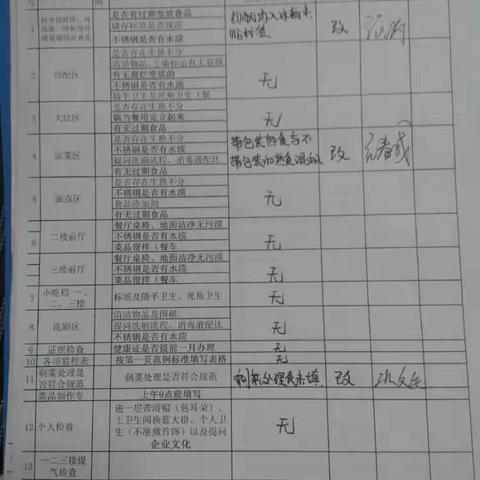 间
是否有过期变质食品
储存标签是否规范
不锈钢是否有水渍
1
改
是否存在生熟不分
清洁物品、上墙标示有人看管
有无腐烂变质的
不锈钢是否有水渍
随手卫生及死角卫生（餐
2
切配区
无
是否存在生熟不分
锅当餐用完立起来
有无过期食品
3
大灶区
无
是否存在生熟不分
不锈钢是否有水渍
提问洗刷流程、消毒液配比
不锈钢是否有水渍
有无过期食品
4
凉菜区
带包装熟食与不
带包装的熟食混放
改
是否存在生熟不分
不锈钢是否有水渍
食品添加剂
有无过期食品
5
面点区
无
餐厅桌椅、地面洁净无污渍
不锈钢是否有水渍
菜品留样（餐车
6
二楼前厅
无
餐厅桌椅、地面洁净无污渍
不锈钢是否有水渍
菜品留样（餐车
三楼前厅
无
7
小吃档 一、
二、三楼
标签及随手卫生、死角卫生
无
清洁物品及围裙
提问洗刷流程、消毒液配比
不锈钢是否有水渍
8
洗刷区
无
9
证照检查
健康证是否提前一月办理
无
10
各项监控表
按第一页范例标准填写表格
无
11
剩菜处理是
否符合规范
剩菜处理是否符合规范
剩菜处理表未填
改
菜品制作专
上午9点前填写
12
个人检查
进一层带浴帽（包耳朵）、
上卫生间换蓝大褂、个人卫
生（不准戴首饰）以及提问
企业文化
无
13
一二三楼煤
气检查